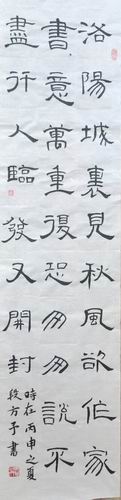 洛陽城裏見秋風欲作家
書意萬重復恐匆匆說不
盡行人臨發又開封
時在丙申之夏
段方予書